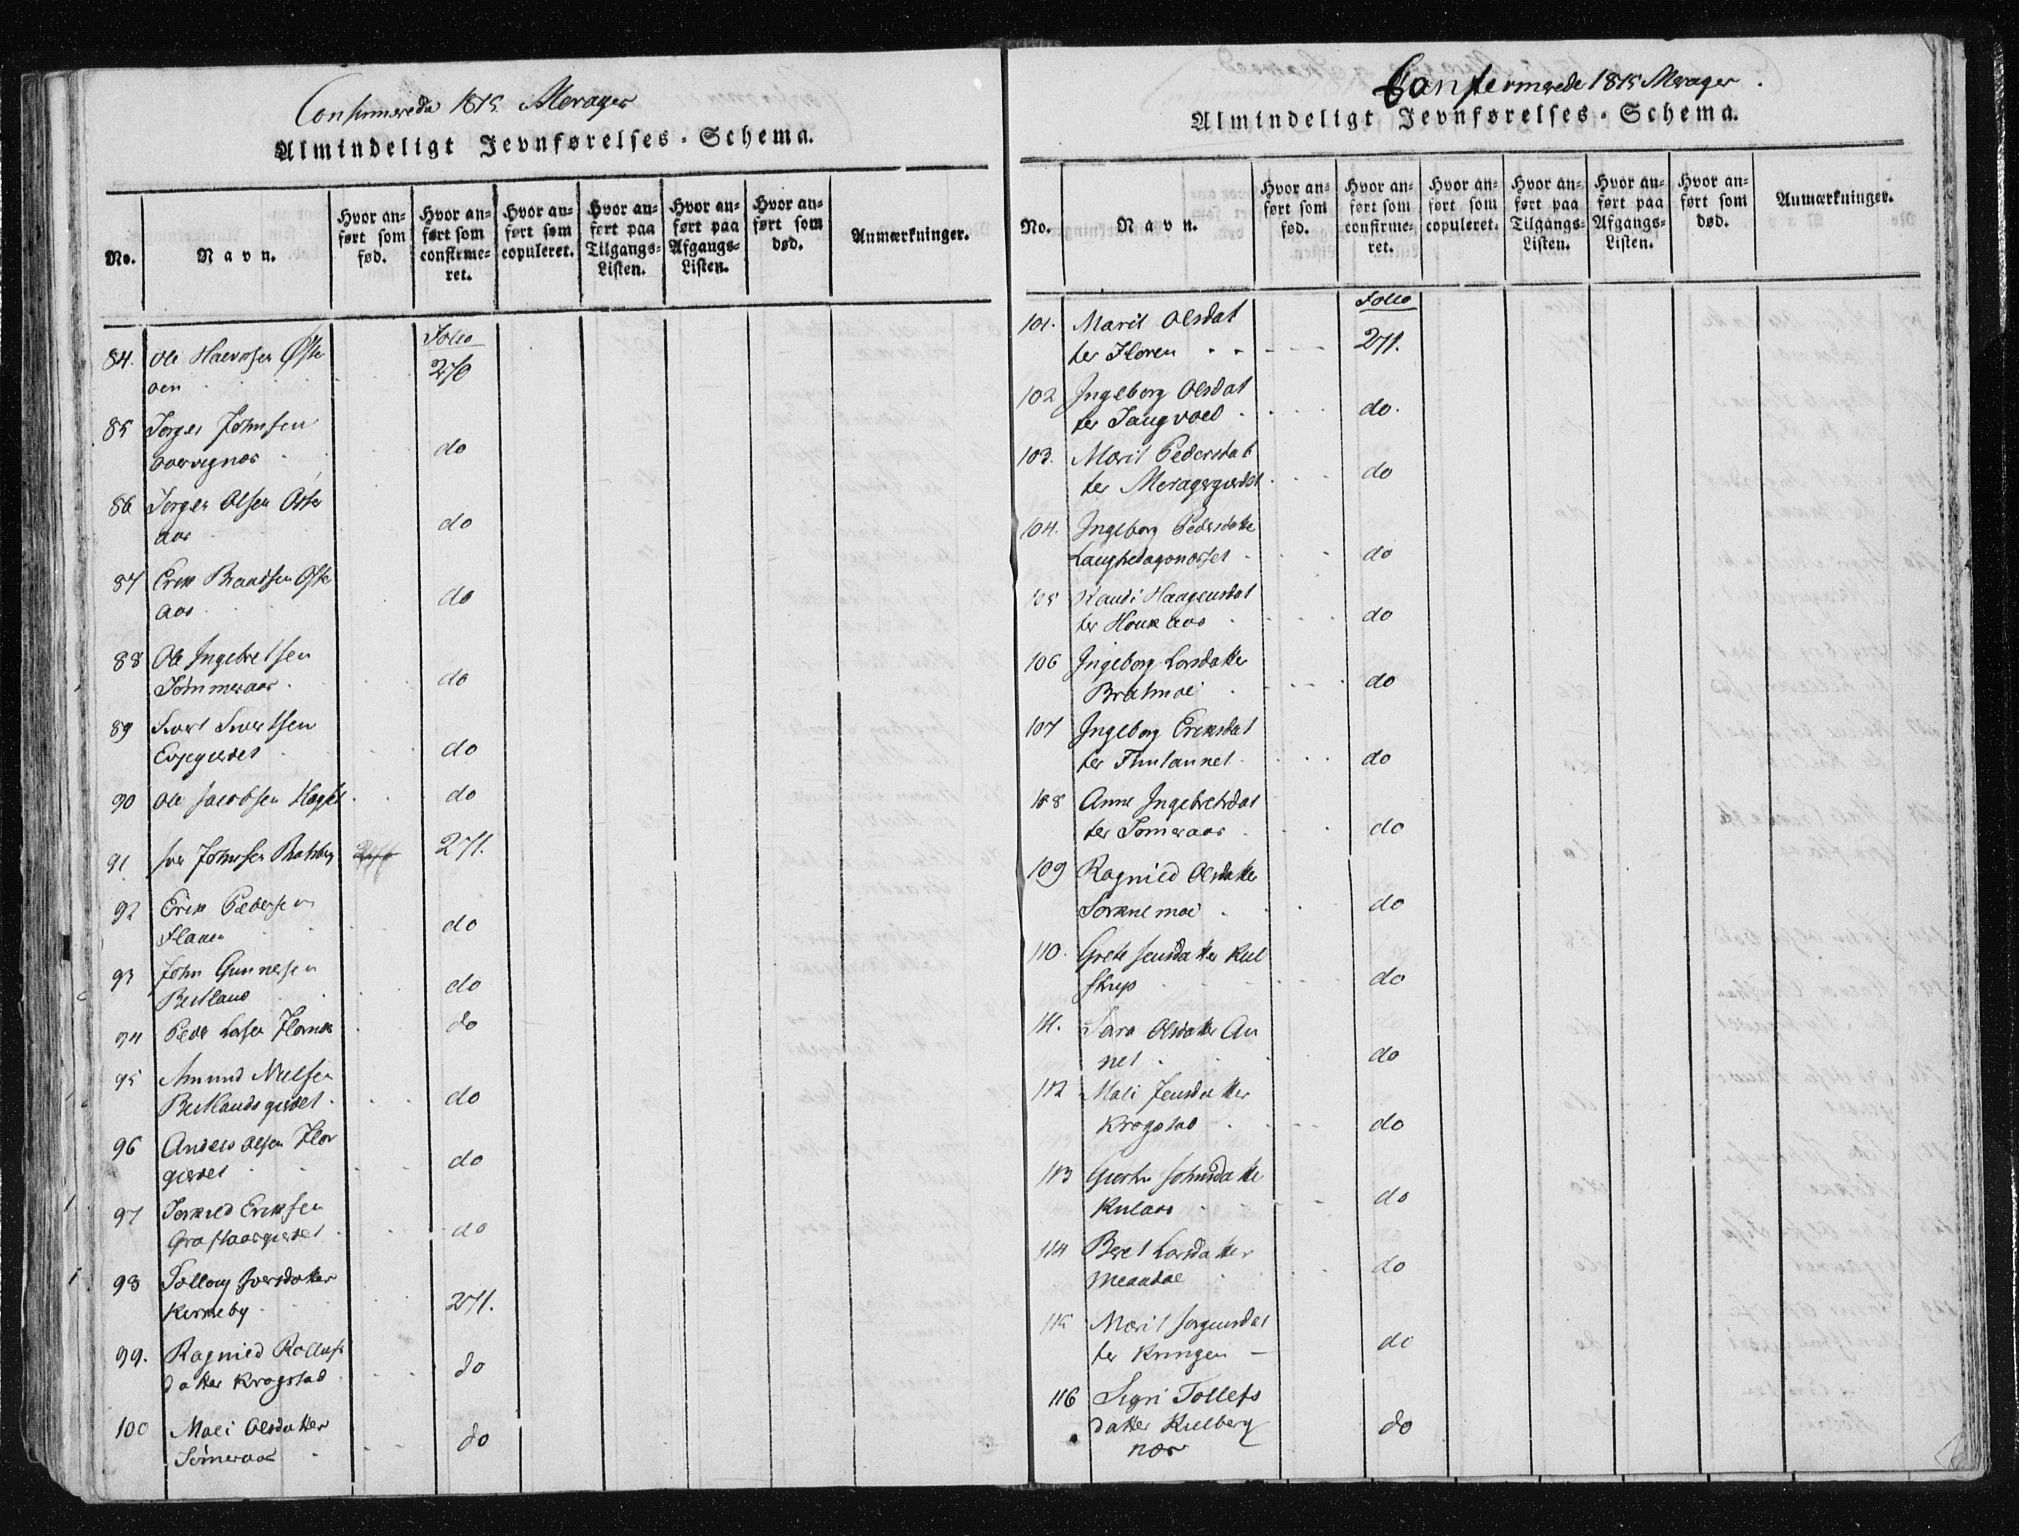 Confirmerede 1815. Merager
Almindeligt Jevnførelses-Schema.
No. Navn. Hvor anført som fød. Hvor anført som confirmeret. Hvor anført som copuleret. Hvor anført paa Tilgangs-Listen. Hvor anført paa Afgangs-Listen. Hvor anført som død. Anmærkninger.
Folio
84. Ole Haevosen Øste
aen 270
85 Jørgen Johnsen
do
86 Jørgen Olsen Øster
aas do
87 Erik Baardsen Øste
aas do
88 Ole Ingebretsen
Sømmeraas do
89 Sivert Sivertsen
Evjegierdet do
90 Ole Jacobsen do
91 Iver Johnsen 271.
92 Erik Pedersen
Flaaen do
93 John Gunnersen
Bestland do
94 Peder Larsen do
95 Amund Nielsen
Bestlandsgierdet do
96 Anders Olsen Flor
gierdet do
97 Torkild Eriksen
Graftaasgierdet do
98 Iversdatter
Kirkeby 271.
99. Ragnild Rollufs
datter Krogstad do
100 Mali Olsdatter
Sømeraas do
Confermerede 1815 Merager.
Almindeligt Jevnførelses-Schema.
No. Navn. Hvor anført som fød. Hvor anført som confirmeret. Hvor anført som copuleret. Hvor anført paa Tilgangs-Listen. Hvor anført paa Afgangs-Listen. Hvor anført som død. Anmærkninger.
Folio
101. Marit Olsdat
ter Floren 271.
102 Ingeborg Olsdat
ter Langvold do.
103. Marit Pedersdat
ter Meragergierdet do
104. Ingeborg Pedersdatter
do
105 Randi Haagensdat
ter do
106 Ingeborg Larsdatter
Bratmoe do
107 Ingeborg Eriksdat
ter do
108 Anne Ingebretsdat
ter Someraas do
109 Ragnild Olsdatter
Torkilmoe do
110. Grete Jensdatter
do
111. Sara Olsdatter Au
net do
112 Mali Jensdatter
Krogstad do
113 Johnsdatter
Kulaas do
114 Beret Larsdatter
do
115 Marit Jorgensdat
ter Kringen do
116 Sigri Tollefs
datter Kielberg
næs do